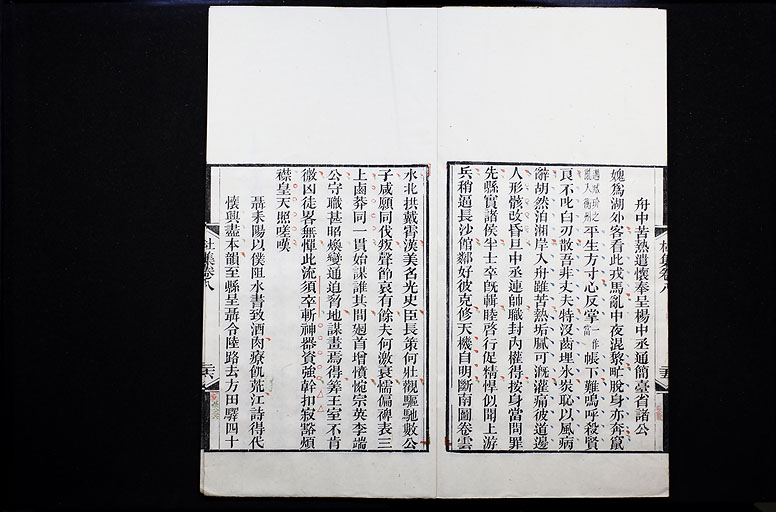 舟中苦熱遣懷奉呈楊中丞通簡臺省諸公
媿爲湖外客看此戎馬亂中夜混黎甿脫身亦奔竄
遇臧玠之亂入衡州平生方寸心反掌一作當帳下難嗚呼殺賢
良不叱白刃散吾非丈夫特沒齒埋氷炭恥以風病
辭胡然泊湘岸入舟雖苦熱垢膩可溉灌痛彼道邊
人形骸改昏旦中丞連帥職封內權得按身當問罪
先縣實諸侯半士卒旣輯睦啓行促精悍似聞上游
兵稍逼長沙館鄰好彼克修天機自明斷南圖卷雲
水北拱戴霄漢美名光史臣長策何壯觀驅馳數公
子咸願同伐叛聲節哀有餘夫何激衰懦偏裨表三
上鹵莽同一貫始謀誰其間廻首增憤惋宗英李端
公守職甚昭煥變通迫脅地謀畫焉得筭王室不肯
微凶徒畧無憚此流須卒斬神器資強幹扣寂豁煩
襟皇天照嗟嘆
聶耒陽以僕阻水書致酒肉療飢荒江詩得代
懷興盡本韻至縣呈聶令陸路去方田驛四十
杜集卷八